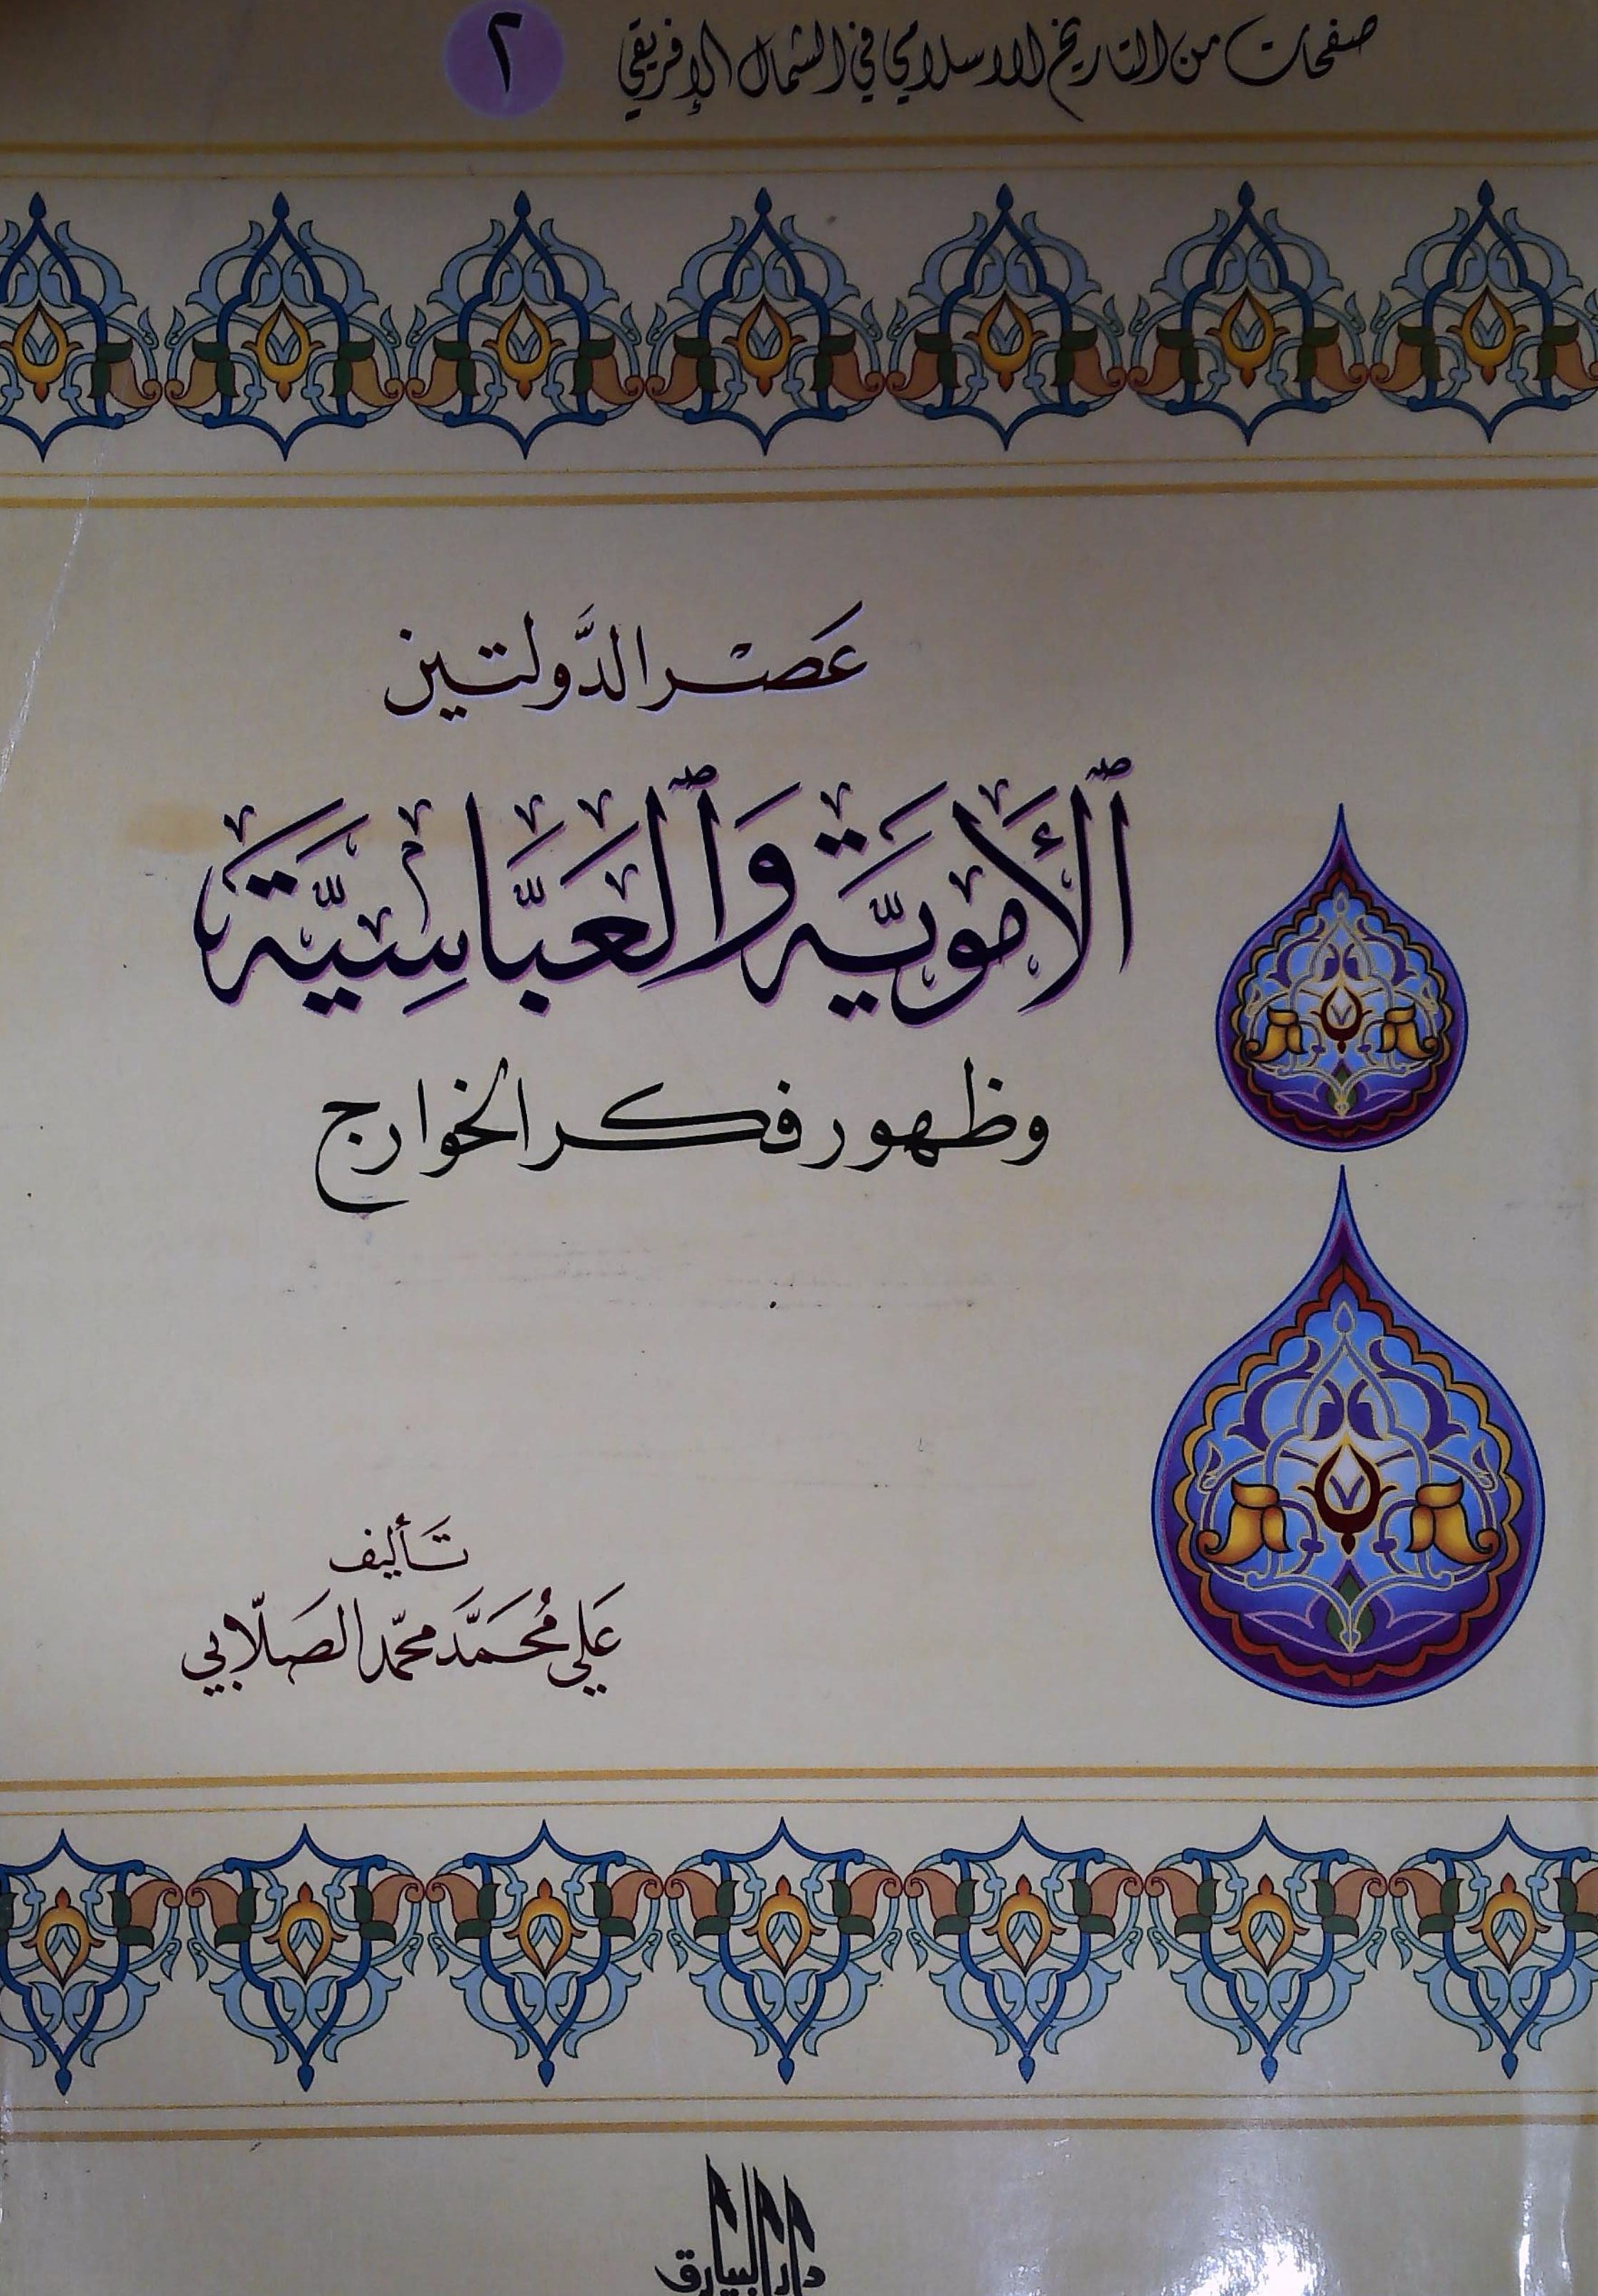 صفحات من التاريخ الاسلامي في الشمال الإفريقي ٢
عَصْر الدَّولتين
ٱلأُمَوِيَّةِ وَٱلعَبَّاسِيَّةِ
وظهور فكر الخوارج
تَأليف
عَلي مُحَمَّد محمّد الصَلّابي
دار البيارق